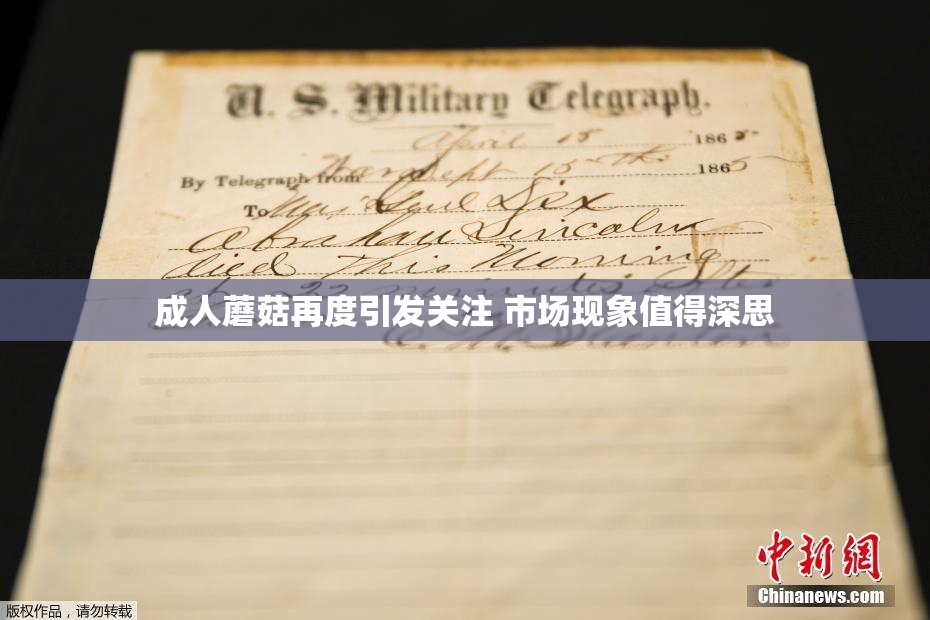 U. S. Military Telegraph.
April 15 1865
By Telegraph from War Dept 15th 1865
To Maj Genl Dix
Abraham Lincoln
died This Morning
at 22 minutes after
成人蘑菇再度引发关注 市场现象值得深思
E. M. Stanton
中新網
Chinanews.com
版权作品，请勿转载